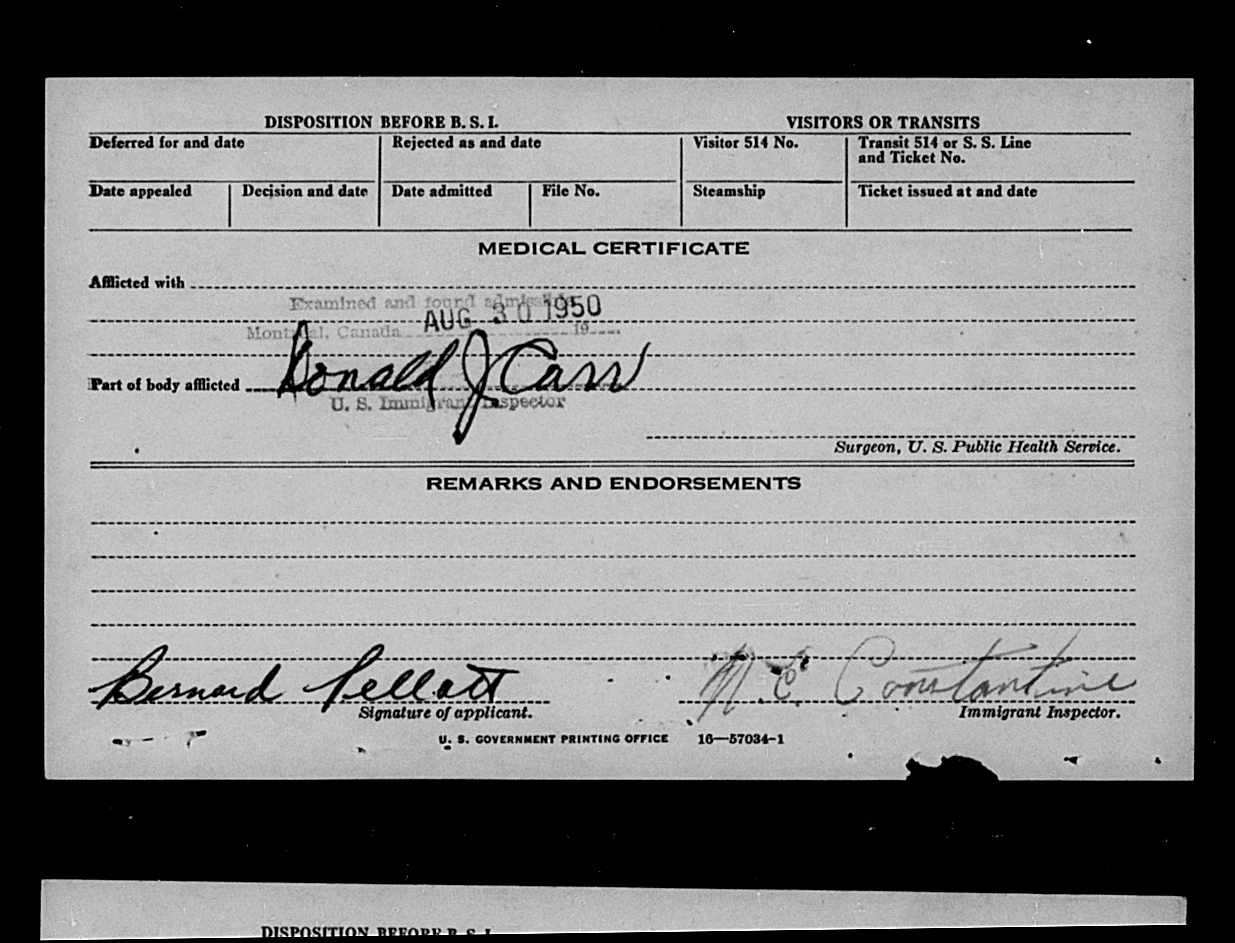 DISPOSITION BEFORE B. S. I.
VISITORS OR TRANSITS
Deferred for and date
Rejected as and date
Visitor 514 No.
Transit 514 or S. S. Line
and Ticket No.
Date appealed
Decision and date
Date admitted
File No.
Steamship
Ticket issued at and date
MEDICAL CERTIFICATE
Afflicted with
Examined and found admissible
AUG 30 1950
Montreal, Canada 19
Part of body afflicted Donald J Carr
U. S. Immigrant Inspector
Surgeon, U. S. Public Health Service.
REMARKS AND ENDORSEMENTS
Bernard Pellatt
N. C. Constantine
Signature of applicant.
Immigrant Inspector.
U. S. GOVERNMENT PRINTING OFFICE 16—57034-1
DISPOSITION BEFORE B. S. I.